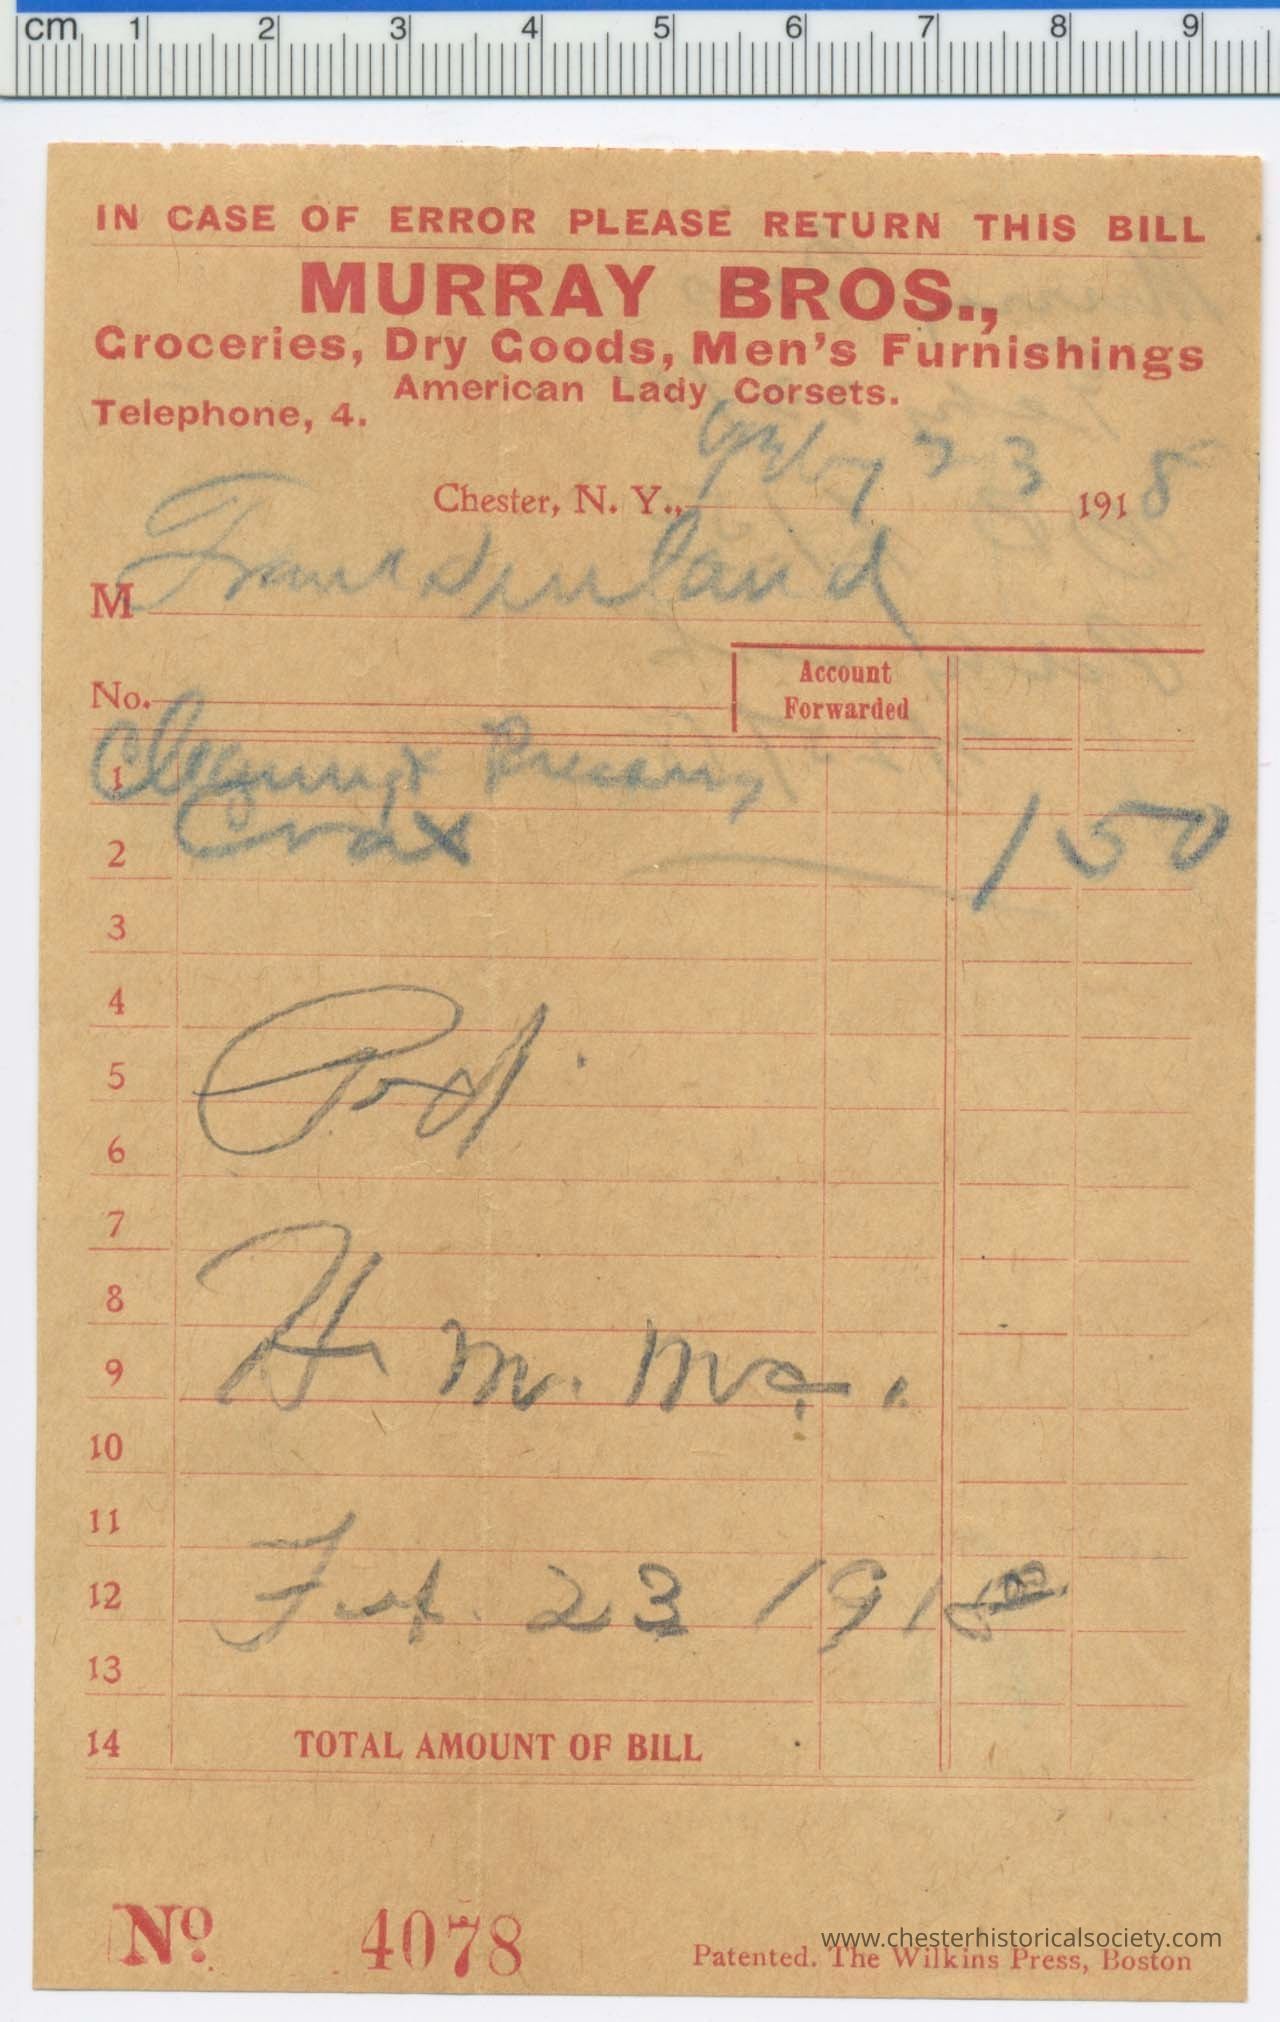 cm 1 2 3 4 5 6 7 8 9
IN CASE OF ERROR PLEASE RETURN THIS BILL
MURRAY BROS.,
Groceries, Dry Goods, Men's Furnishings
American Lady Corsets.
Telephone, 4.
Chester, N. Y., 23 1918
M Frank Durland
No. Account Forwarded
1 Cleaning & Pressing
2 Coat 1 50
3
4
5 Pod.
6
7
8
9 H. M.
10
11
12 Feb. 23 1918
13
14 TOTAL AMOUNT OF BILL
No. 4078
www.chesterhistoricalsociety.com
Patented. The Wilkins Press, Boston